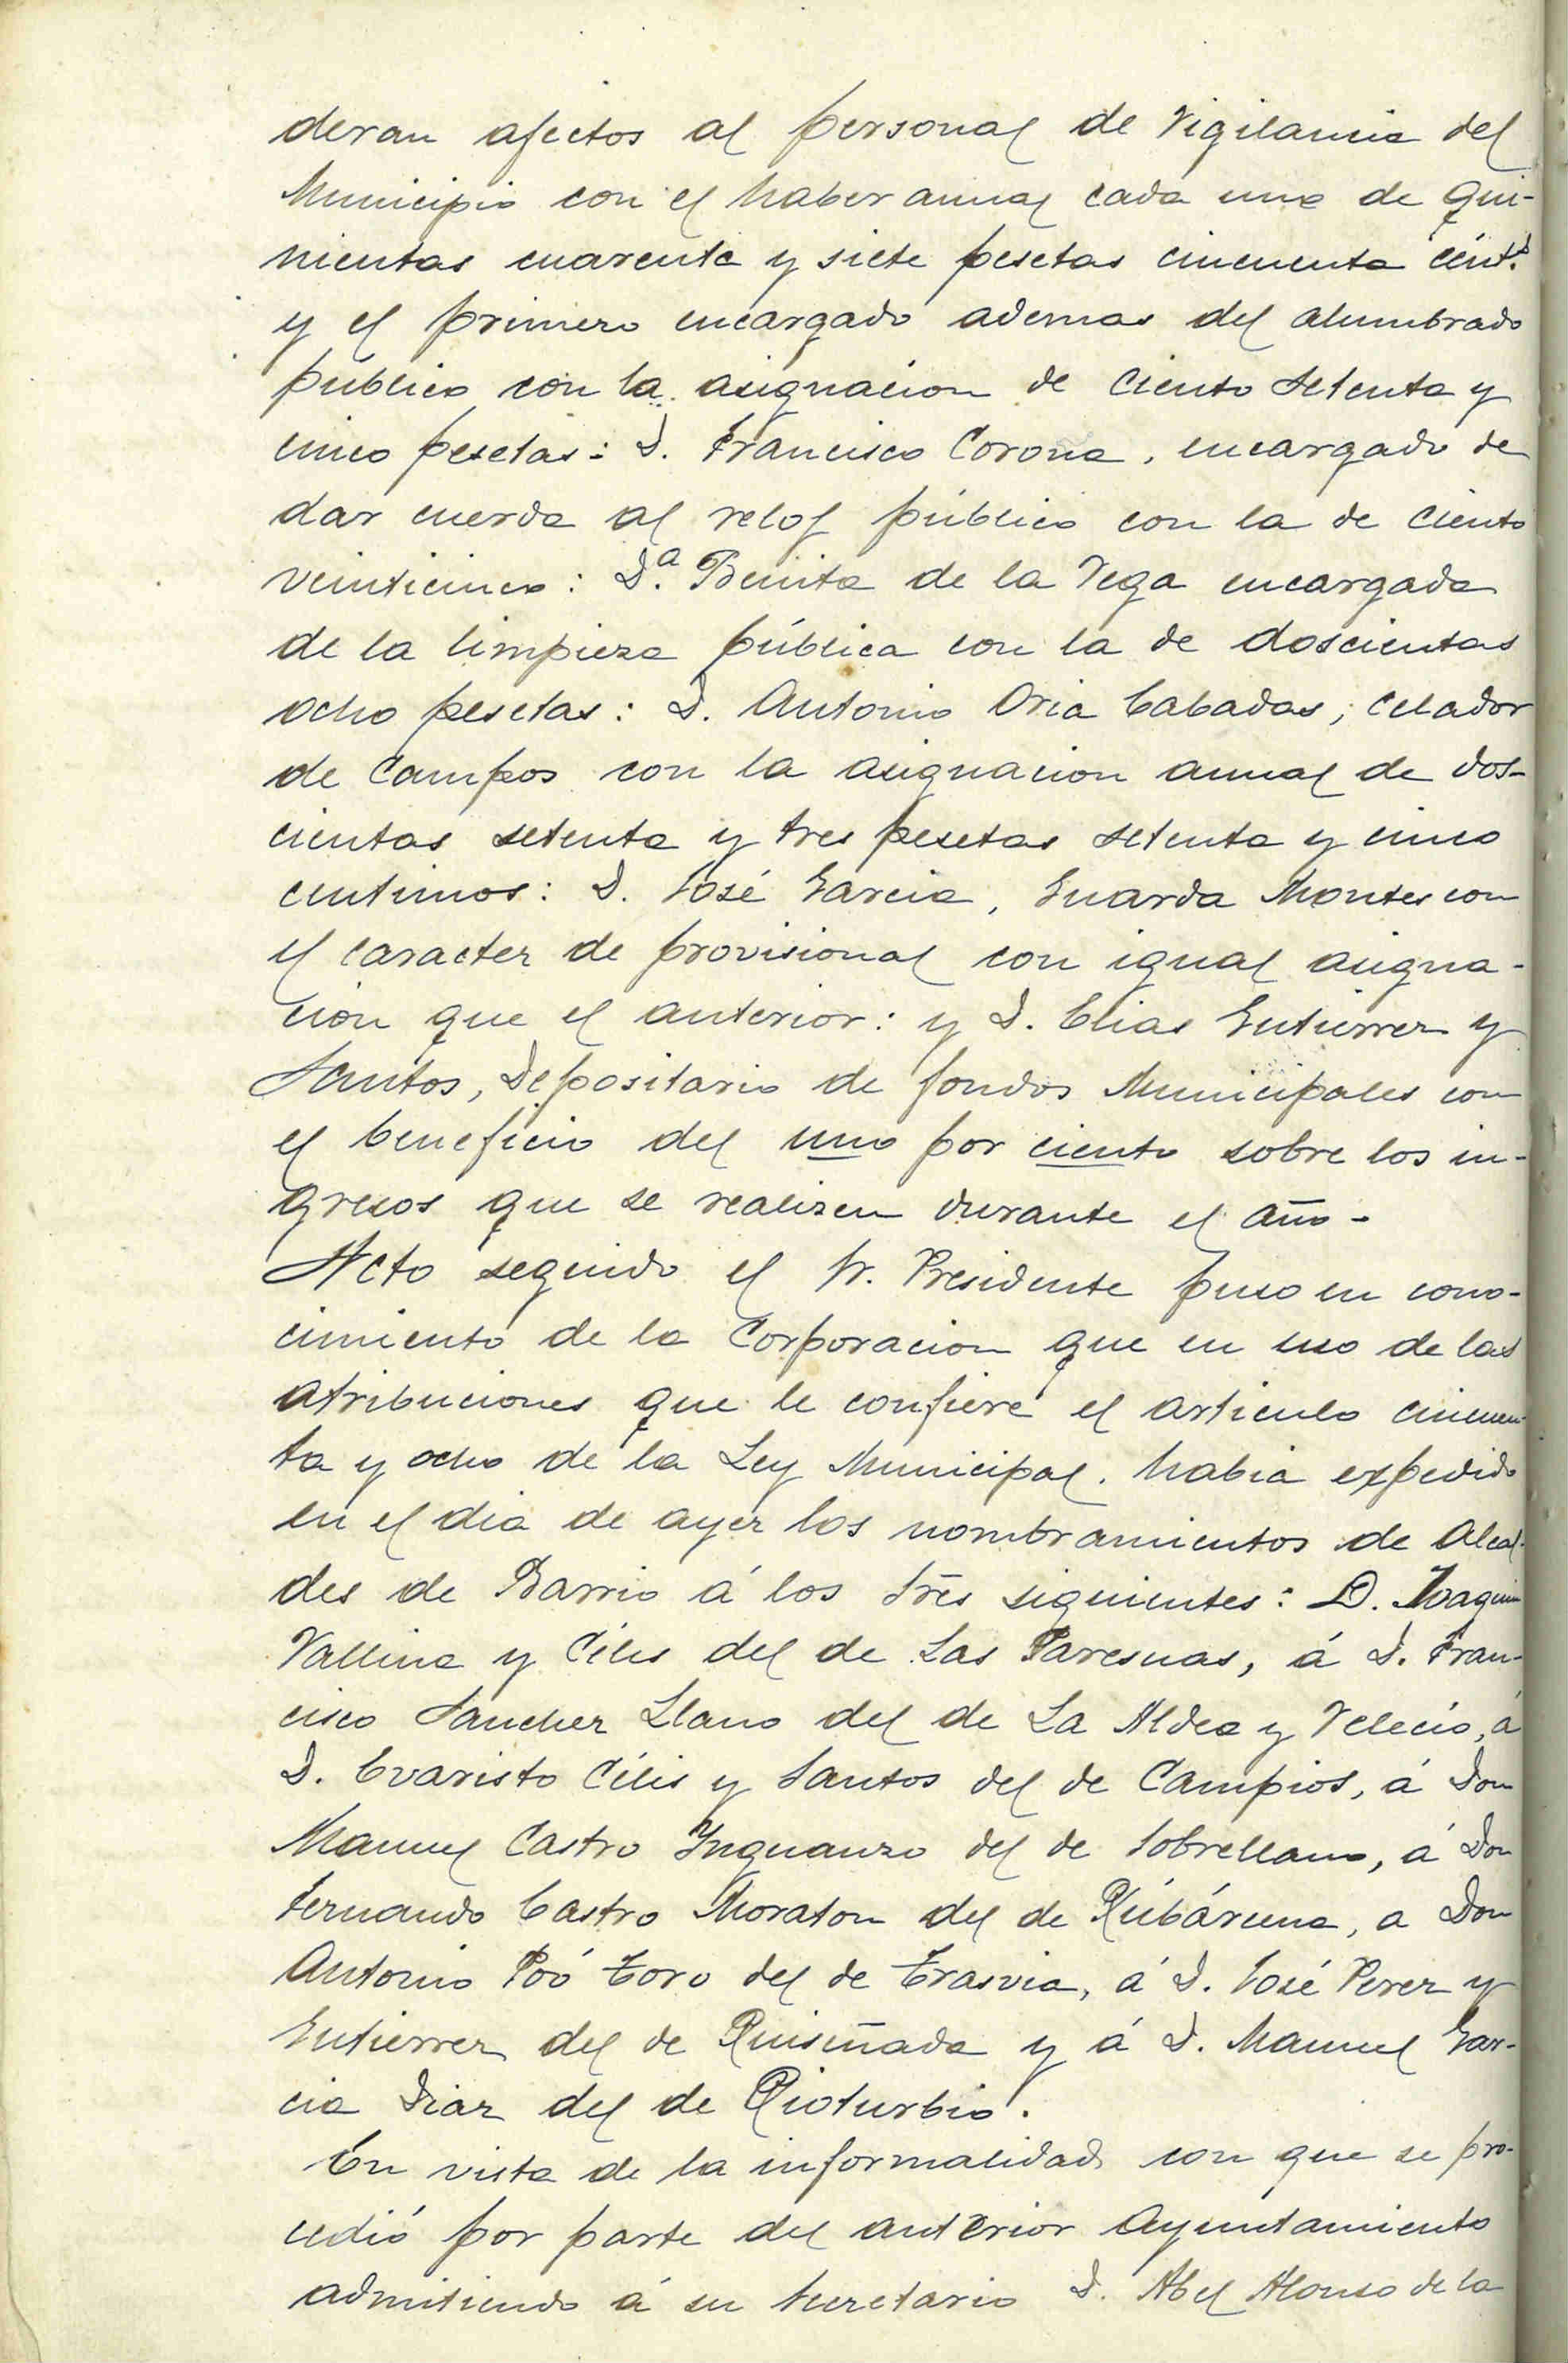 deran afectos al personal de Vigilancia del
Municipio con el haber anual cada uno de qui-
nientas cuarenta y siete pesetas cincuenta cént.s
y el primero encargado ademas del alumbrado
público con la asignacion de ciento setenta y
cinco pesetas: D. Francisco Corona, encargado de
dar cuerda al reloj público con la de ciento
veinticinco: D.a Benita de la Vega encargada
de la limpieza pública con la de doscientas
ocho pesetas: D. Antonio Oria Cabadas, celador
de Campos con la asignacion anual de dos-
cientas setenta y tres pesetas setenta y cinco
centimos: D. José Garcia, Guarda Montes con
el caracter de provisional con igual asigna-
cion que el anterior: y D. Elias Gutierrez y
Santos, Depositario de fondos Municipales con
el beneficio del uno por ciento sobre los in-
gresos que se realizen durante el año-
Acto seguido el Sr. Presidente puso en cono-
cimiento de la Corporacion que en uso de las
atribuciones que le confiere el articulo cincuen-
ta y ocho de la Ley Municipal, habia expedido
en el dia de ayer los nombramientos de Alcal-
des de Barrio á los Sres siguientes: D. Joaquin
Vallina y Célis del de Las Paresuas, á D. Fran-
cisco Sanchez Llano del de La Aldea y Velecio, á
D. Evaristo Célis y Santos del de Campios, á Don
Manuel Castro Ynguanzo del de Sobrellano, á Don
Fernando Castro Moraton del de Rubárcena, a Don
Antonio Poó Toro del de Trasvia, á D. José Perez y
Gutierrez del de Ruiseñada y á D. Manuel Gar-
cia Diaz del de Rioturbio.
En vista de la informalidad con que se pro-
cedió por parte del anterior Ayuntamiento
admitiendo á su Secretario D. Abel Alonso de la